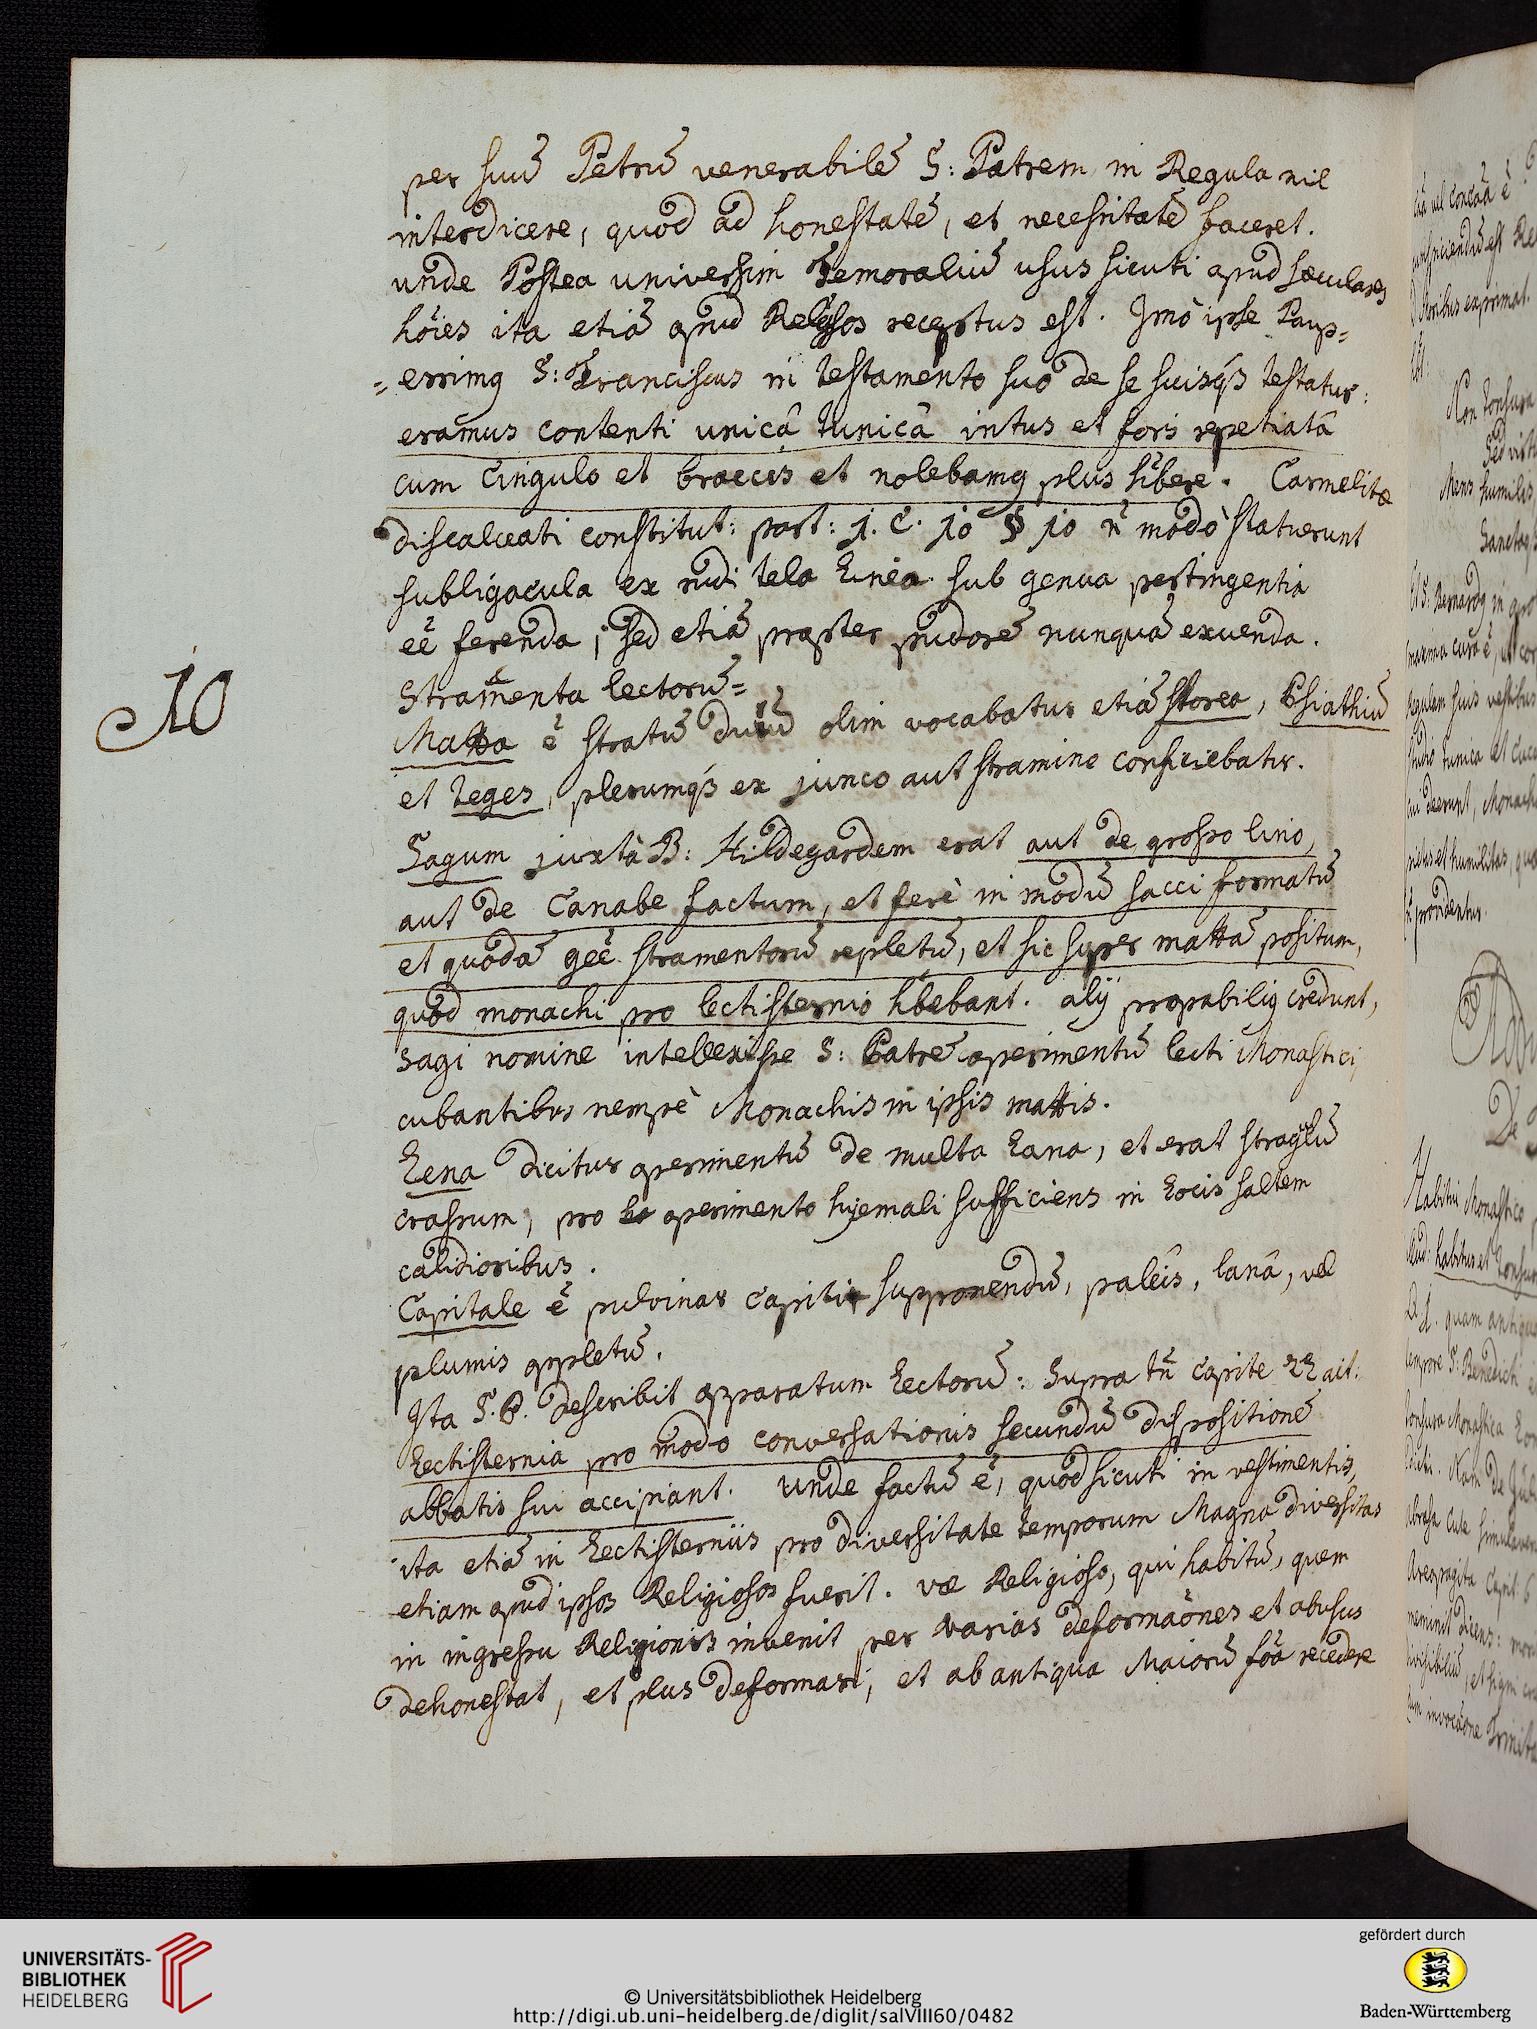 per suū Petrū venerabilē S: Patrem in Regula nil
interdicere, quod ad honestatē, et necessitatē faceret.
unde Postea universim Femoraliū usus sicuti apud sæculares
hoīes ita etiā apud Relgsos receptus est. Imò ipse Paup=
=errimg S: Franciscus in testamento suo de se suisqȝ testatur:
eramus contenti unicâ tunicâ intus et foris repetiatâ
cum Cingulo et braccis et nolebamg plus hībere. Carmelitæ
discalceati constitut: part: j. C. jo § jo n̄ modò statuerunt
subligacula ex rudi tela linea sub genua pertingentia
eē ferenda; sed etiā præter pudorē nunquā exuenda.
10
Stramenta lectorū=
Matta ē stratū durū olim vocabatur etiā storea, Psiathiū
et teges, plerumqȝ ex junco aut stramine conficiebatur.
Sagum juxtà B: Hildegardem erat aut de grosso lino,
aut de Canabe factum, et ferè in modū sacci formatū
et quodā geē stramentorū repletū, et sic super mattā positum,
quod monachi pro lectisternio hībebant. alij propabilig credunt,
sagi nomine intellexisse S: Patrē operimentū lecti Monastici,
cubantibus nempè Monachis in ipsis mattis.
Lena dicitur operimentū de multa Lana, et erat stragulū
crassum, pro operimento hyemali sufficiens in Locis saltem
calidioribus.
Capitale ē pulvinar capiti supponendū, paleîs, lanâ, vel
plumis oppletū.
Ista S. P. describit apparatum Lectorū: Supra tn̄ Capite 22 ait:
Lectisternia pro modo conversationis secundū dispositionē
abbatis sui accipiant. Unde factū ē, quod sicuti in vestimentis,
ita etiā in Lectisterniis pro diversitate temporum Magna diversitas
etiam apud ipsos Religiosos fuerit. væ Religioso, qui habitū, quem
in ingressu Religionis invenit per varias deformaōnes et abusus
dehonestat, et plus deformari, et ab antiqua Maiorū foā recedere
UNIVERSITÄTS-
BIBLIOTHEK
HEIDELBERG
© Universitätsbibliothek Heidelberg
http://digi.ub.uni-heidelberg.de/diglit/salVIII60/0482
gefördert durch
Baden-Württemberg